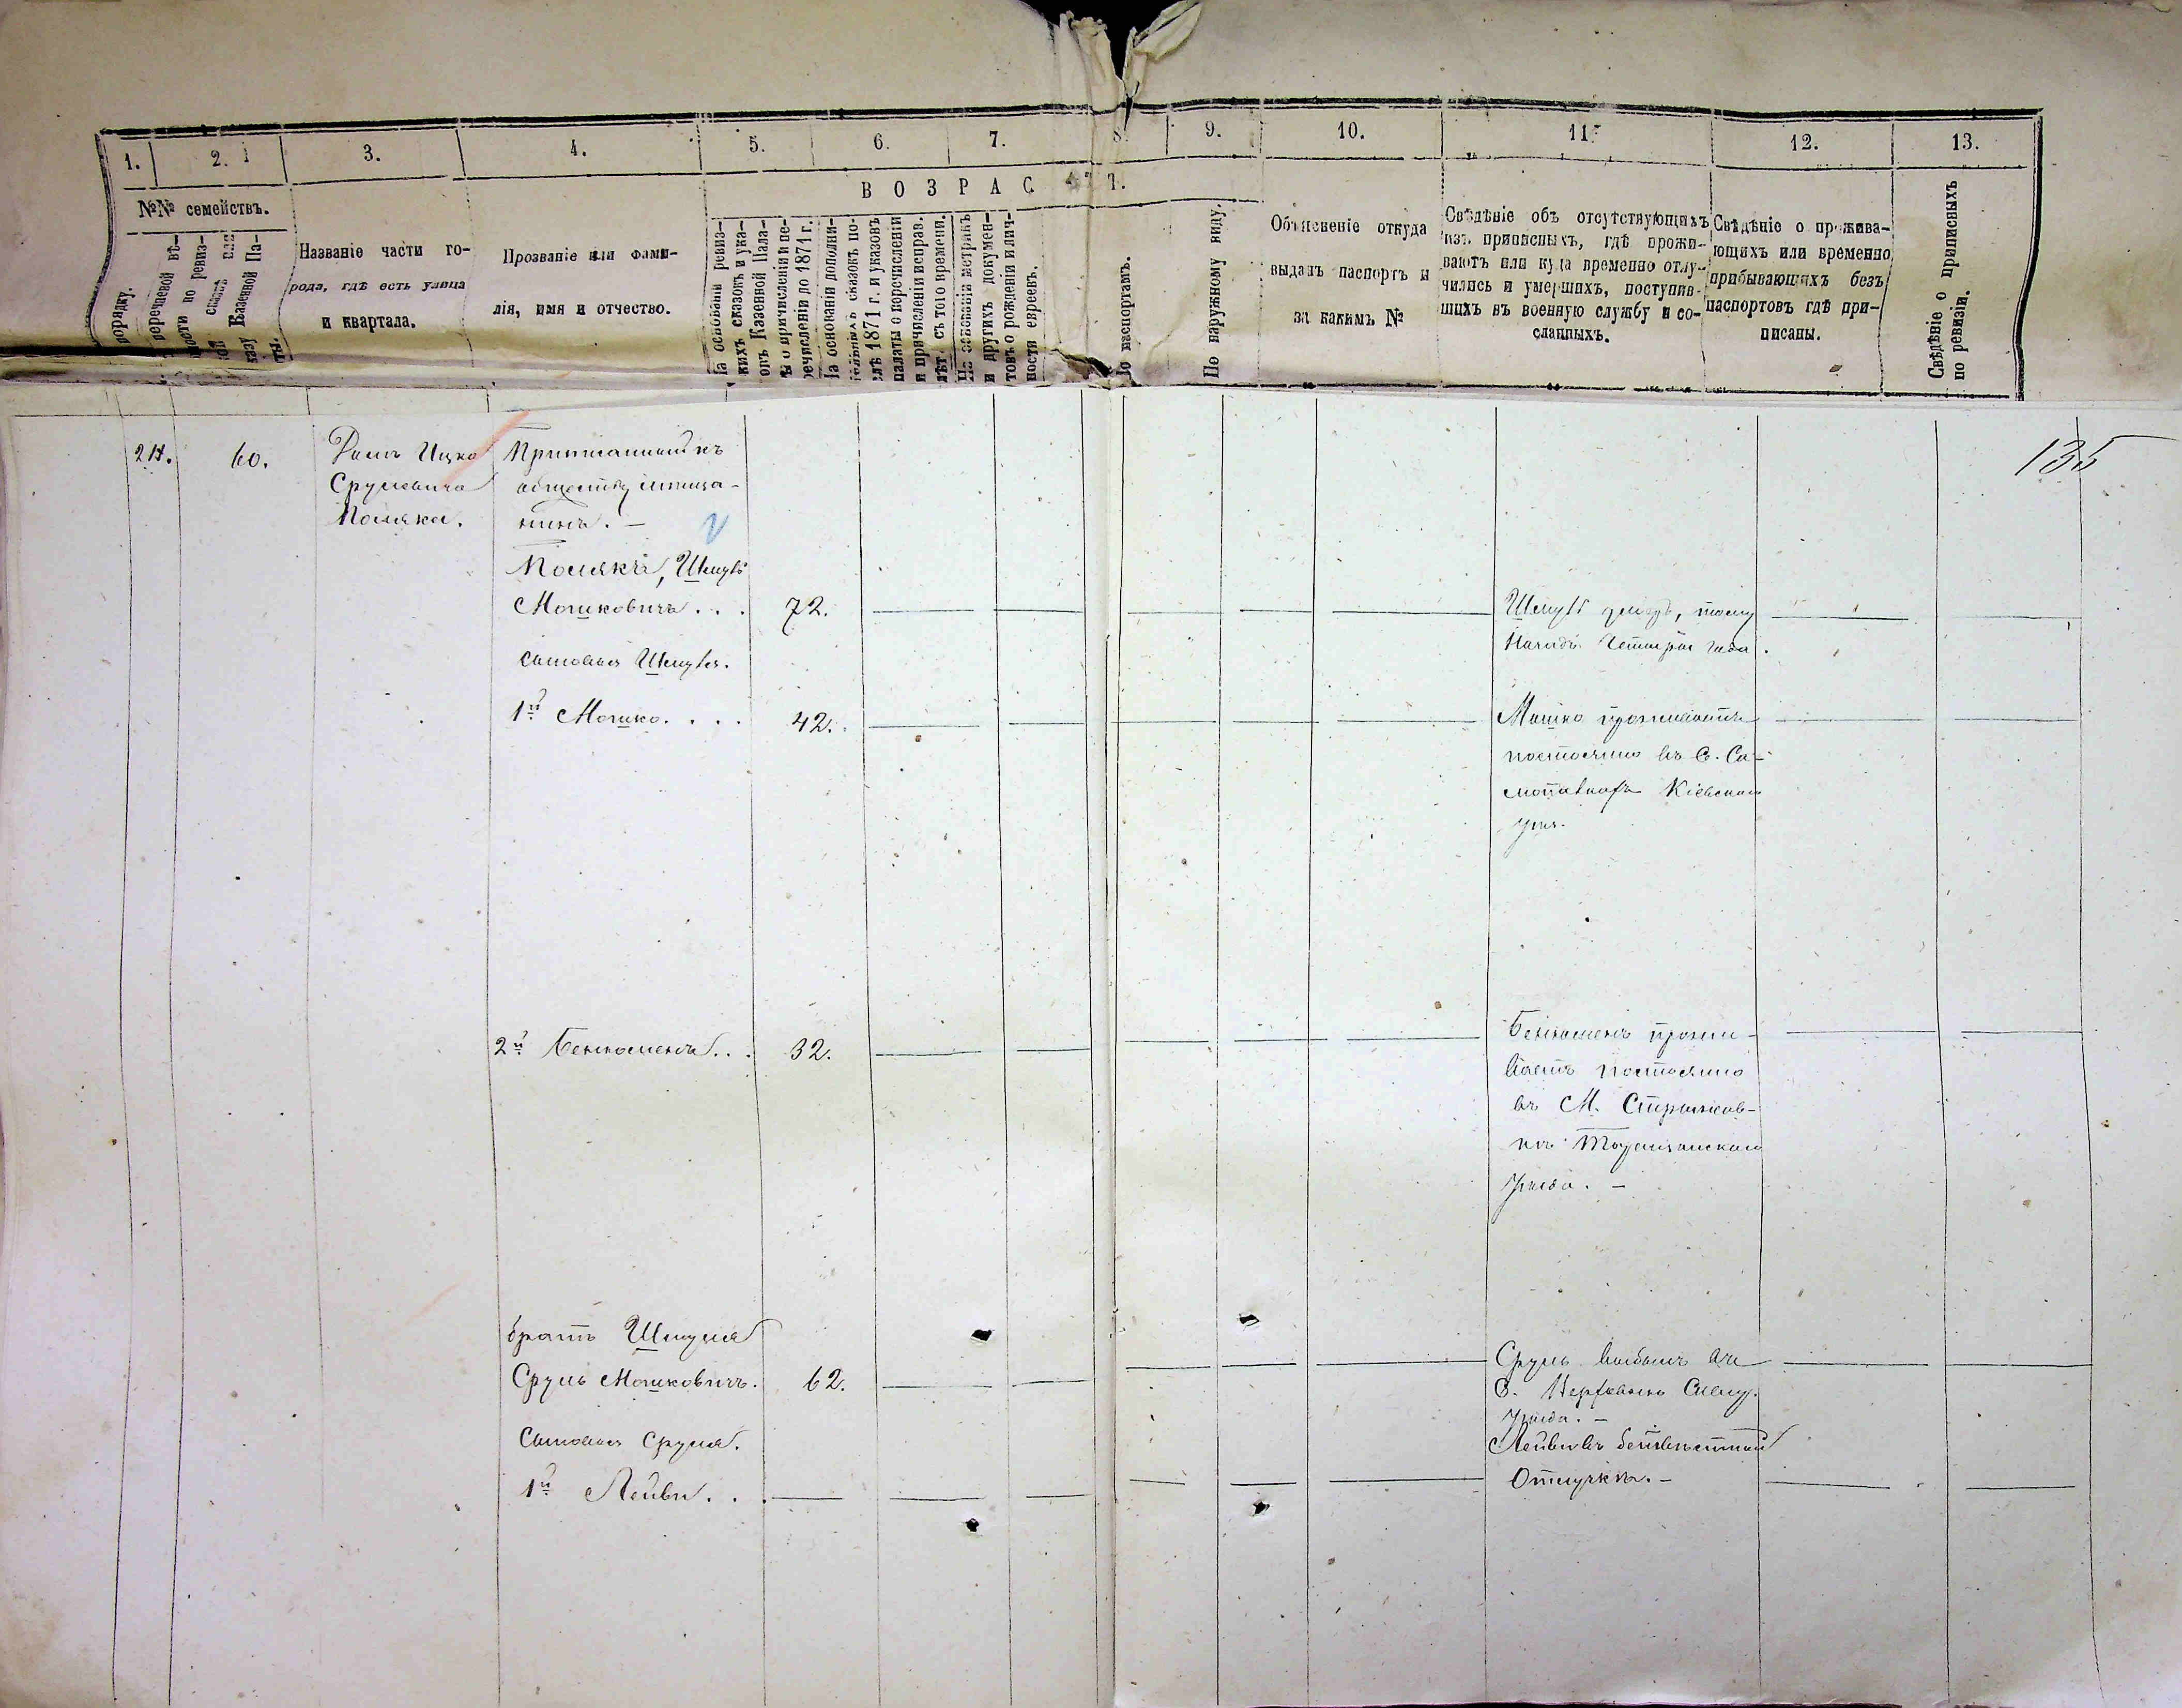 1.
2.
3.
4.
5.
6.
7.
8.
9.
10.
11.
12.
13.
№№ семействъ.
ВОЗРАСТ
порядку.
перечневой вѣ-
ности по ревиз-
ой сказкѣ или
казу Казенной Па-
ты.
Названіе части го-
рода, гдѣ есть улица
и квартала.
Прозваніе или фами-
лія, имя и отчество.
На основаніи ревиз-
кихъ сказокъ и ука-
овъ Казенной Пала-
ы о причисленіи и пе-
речисленіи до 1871 г.
На основаніи дополни-
тельныхъ сказокъ по-
слѣ 1871 г. и указовъ
палаты о перечисленіи
и причисленіи исправ.
лѣт. съ того времени.
На основаніи метрикъ
и другихъ докумен-
товъ о рожденіи и лич-
ности евреевъ.
По паспортамъ.
По наружному виду.
Объясненіе откуда
выданъ паспортъ и
за какимъ №
Свѣдѣніе объ отсутствующихъ
изъ приписныхъ, гдѣ прожи-
ваютъ или куда временно отлу-
чились и умершихъ, поступив-
шихъ въ военную службу и со-
сланныхъ.
Свѣдѣніе о прожива-
ющихъ или временно
прибывающихъ безъ
паспортовъ гдѣ при-
писаны.
Свѣдѣніе о приписныхъ
по ревизіи.
135
60.
Домъ Ицка
Срулевича
Поляка.
Приписанный къ
обществу мѣща-
нинъ. —
Полякъ, Шмуль
Мошковичъ . . . 72.
Шмуль умеръ, тому
назадъ четыре года.
сыновья Шмуля.
1й Мошко. . . . 42.
Мошко проживаетъ
постоянно въ С.
Кіевской
2й Беньюменъ. . . 32.
Беньюменъ прожи-
ваетъ постоянно
въ М. Стрижев-
кѣ
уѣзда. —
братъ Шмуля
Сруль Мошковичъ. 62.
Сруль выбылъ въ
С.
уѣзда. —
Сыновья Сруля.
1й Лейви. . .
Лейви въ безвѣстной
отлучкѣ. —